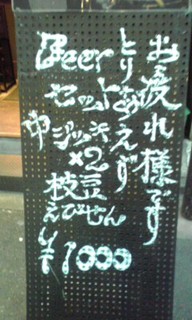 お疲れ様です
とりあえず
Beer
セット
中ジョッキ
×2
枝豆
えびせん
¥1000